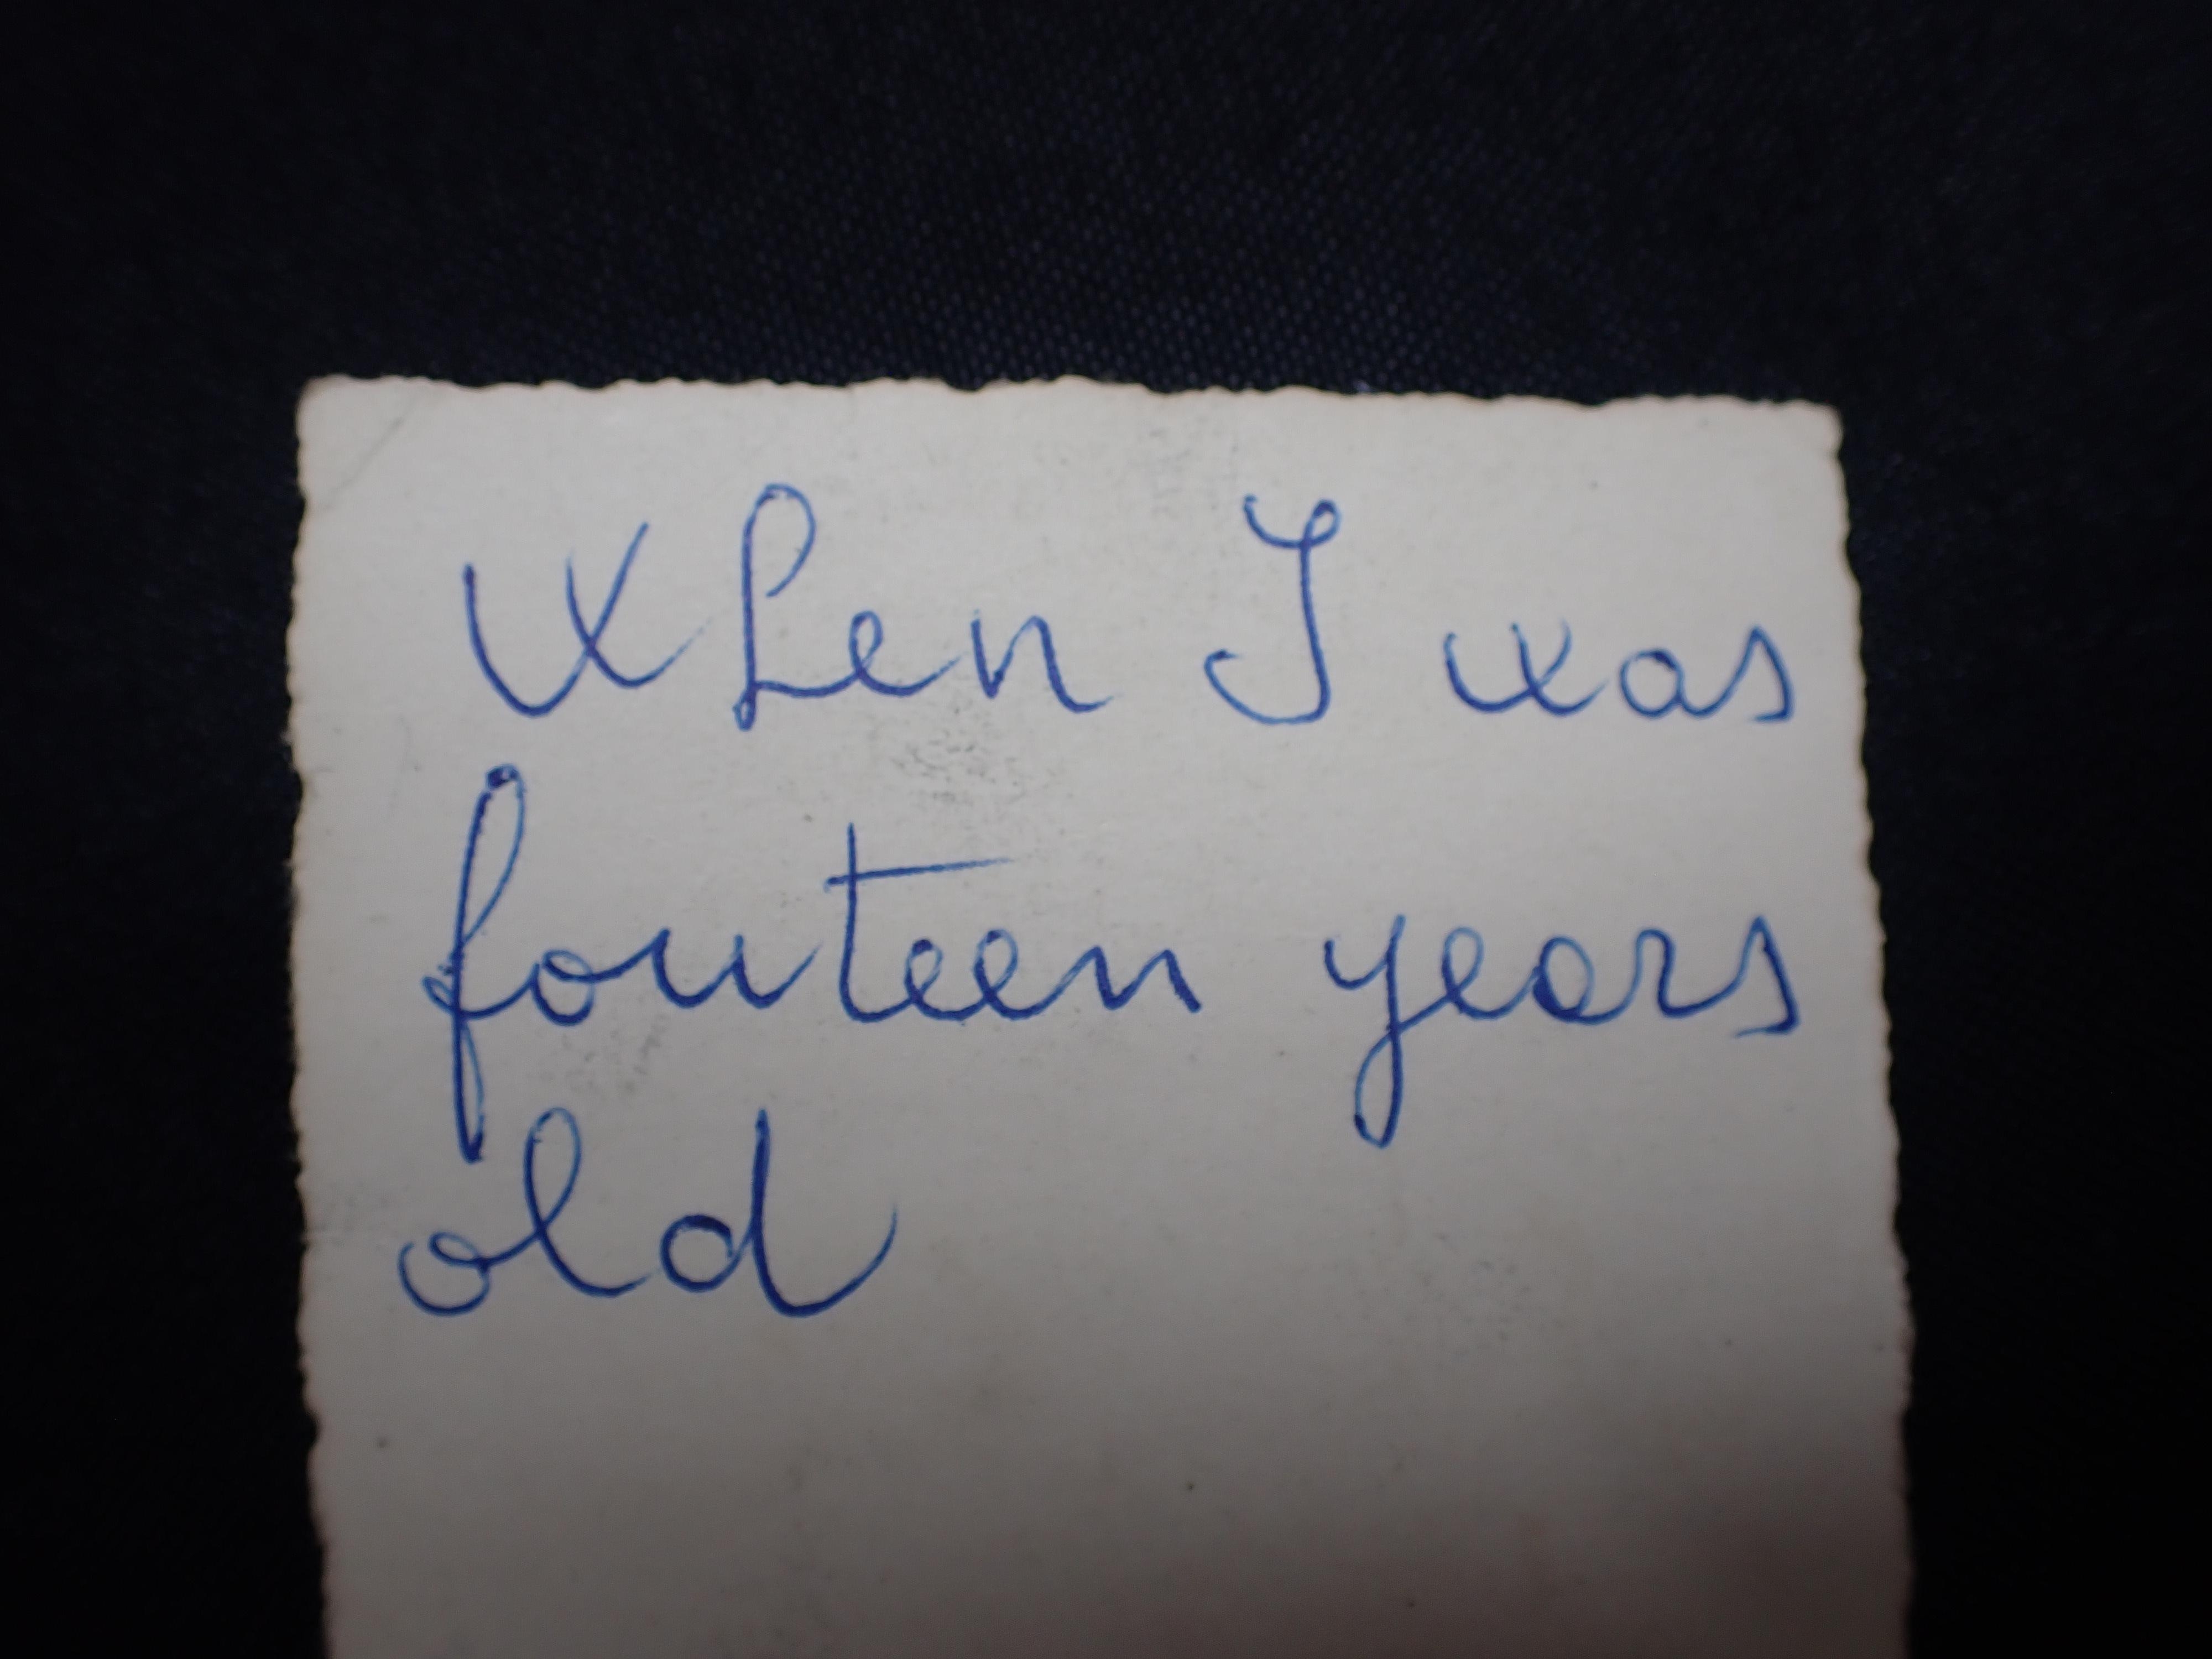 When I was
fouteen years
old